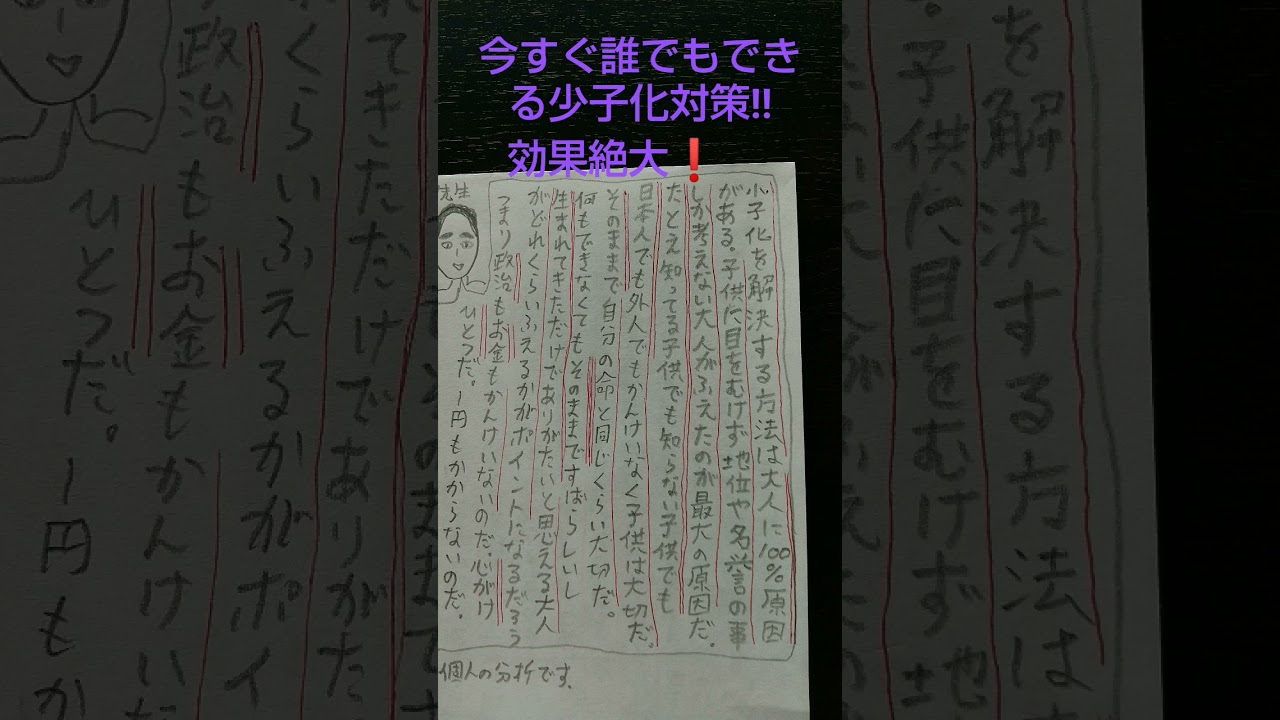 今すぐ誰でもでき
る少子化対策‼
効果絶大❗
少子化を解決する方法は大人に100%原因
がある。子供に目をむけず地位や名誉の事
しか考えない大人がふえたのが最大の原因だ。
たとえ知ってる子供でも知らない子供でも
日本人でも外人でもかんけいなく子供は大切だ。
そのままで自分の命と同じくらい大切だ。
何もできなくてもそのままですばらしいし
生まれてきただけでありがたいと思える大人
がどれくらいふえるかがポイントになるだろう
つまり政治もお金もかんけいないのだ。心がけ
ひとつだ。1円もかからないのだ。
先生
個人の分析です。